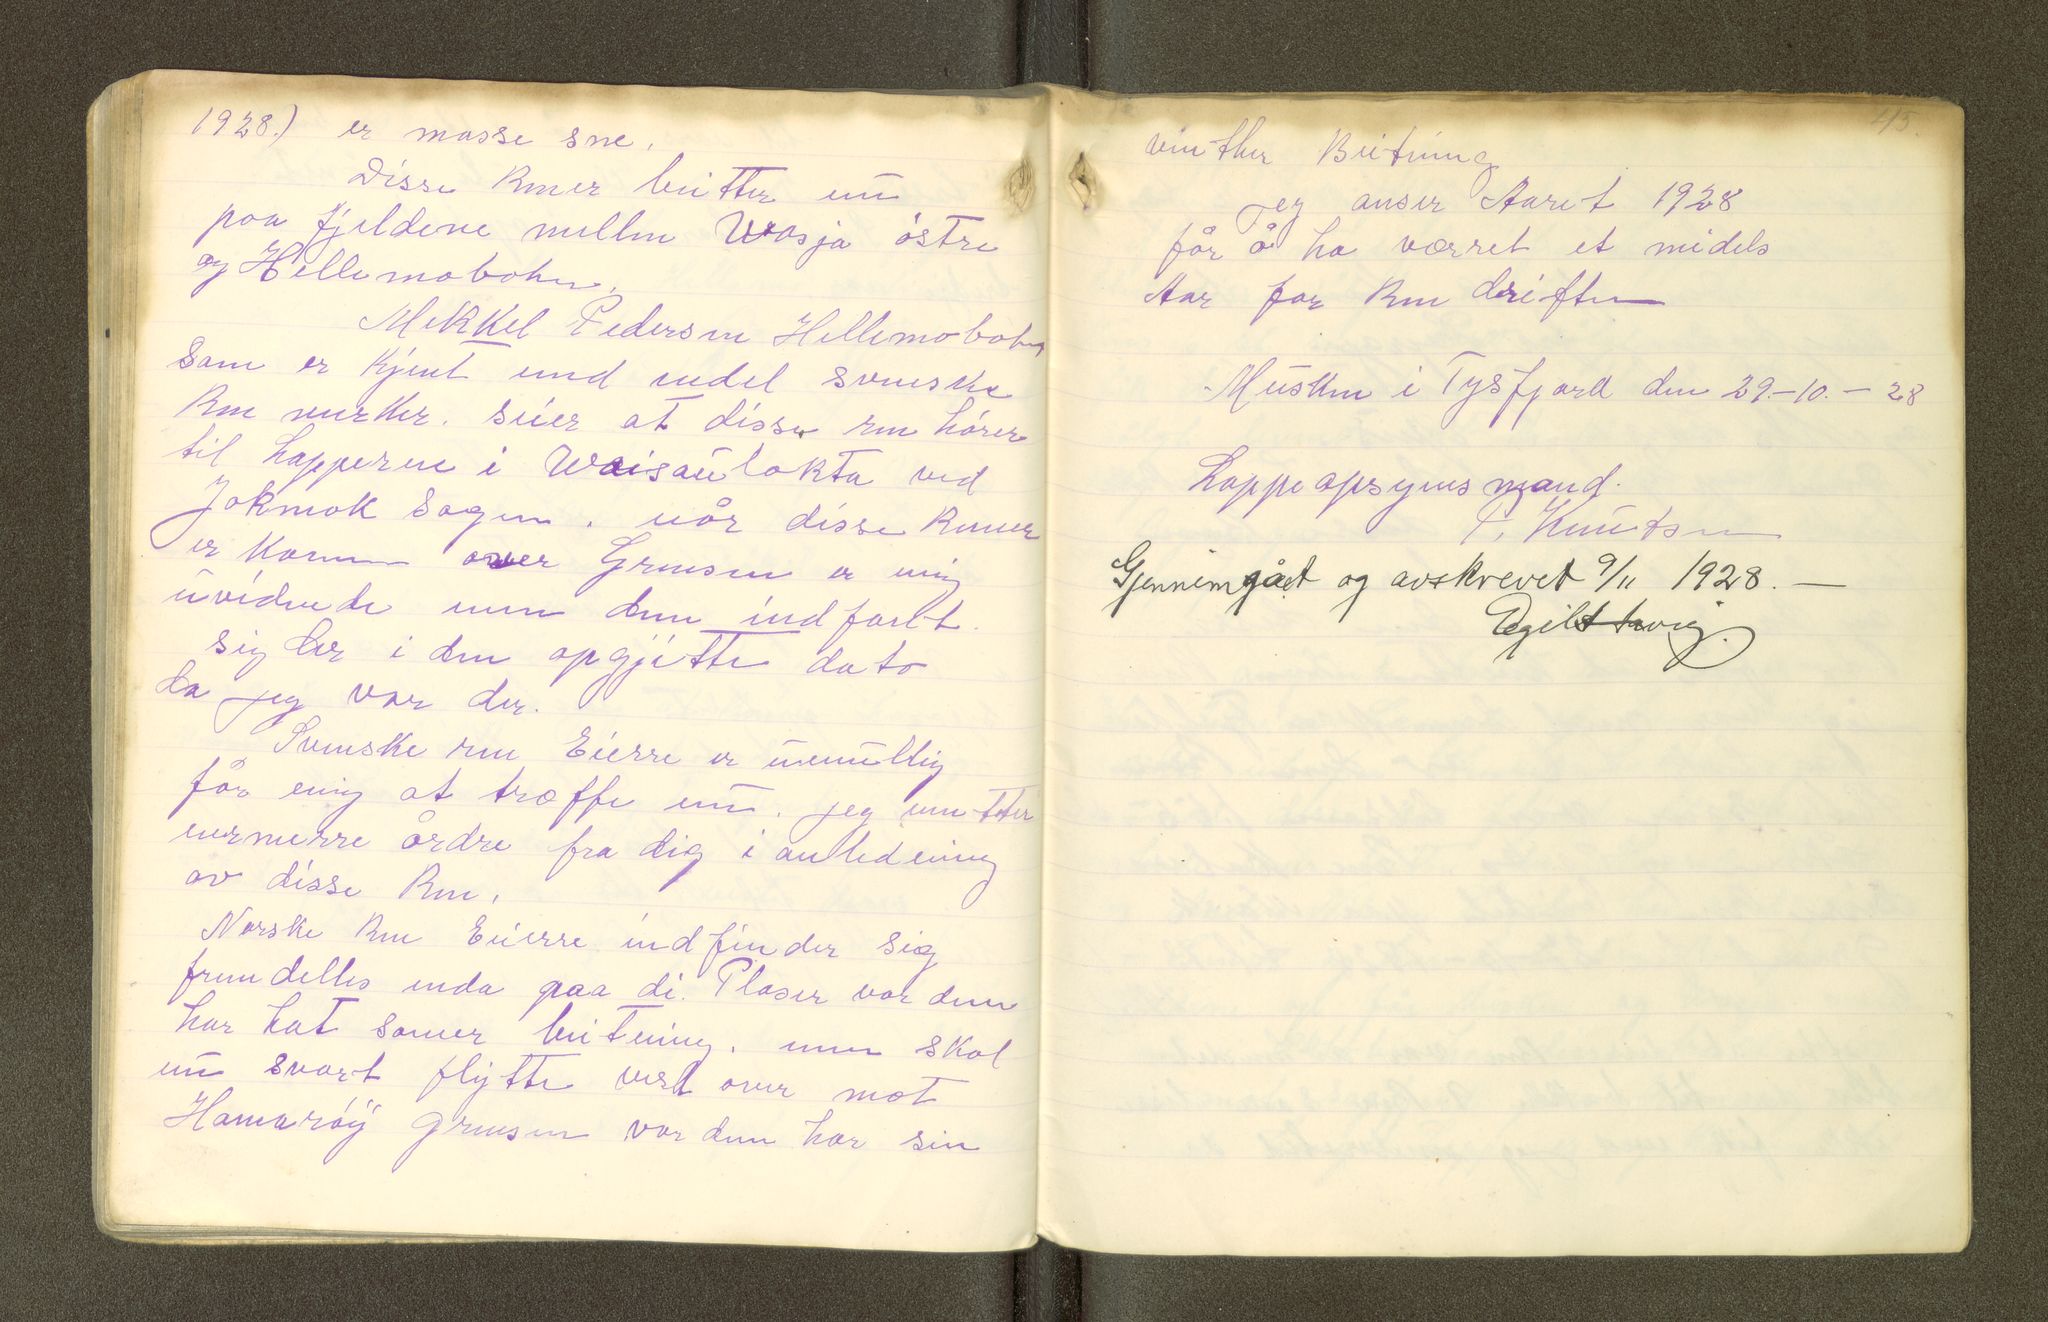 1928.) er masse sne.
Disse Rener beitter nu
paa fjeldene mellen Wasja østre
og Hellemobotn.
Mekkel Pedersen Hellemobotn
som er kjent med endel svenske
Ren merker. sier at disse ren hører
til Lapperne i Waisaulokta ved
Jokmok Sogen. når disse Rener
er komen over Grensen er mig
uvidende men dem indfant
sig her i den opgjette dato
da jeg var der.
Svenske ren Eierre er uemullig
får mig at træffe nu. jeg venter
nermerre årdre fra dig i anledening
av disse Ren.
Norske Ren Eierre indfinder sig
fremdelles enda paa di. Plaser vor dem
har hat somer beitening. men skal
nu svart flytte vest over mot
Hamarøÿ grensen vor dem har sin
45.
vinther Beitning
Jeg anser Aaret 1928
får å ha værret et midels
Aar for Ren driften
Musken i Tysfjord den 29.-10.-28
Lappeopsynsmand.
P. Knutsen
Gjennemgået og avskrevet 9/11 1928. —